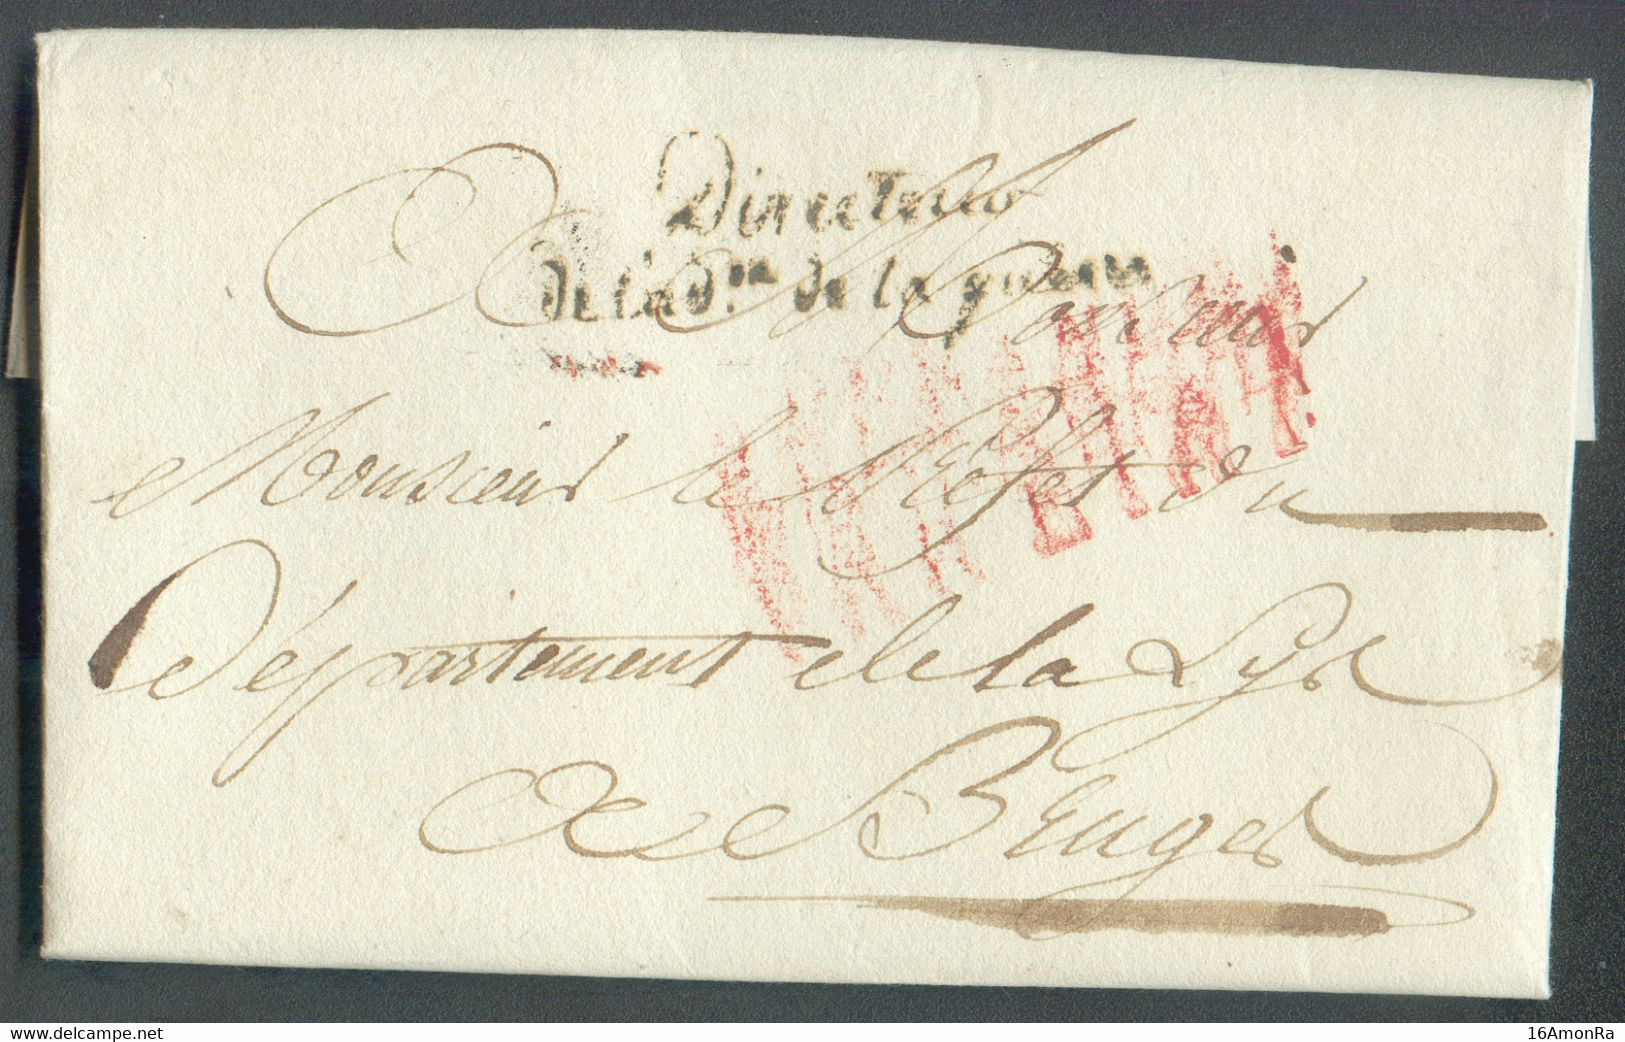 Directeur
de l'ad.on de la guerre
A Monsieur
Monsieur le Préfet du
Département de la Lys
A Bruges
delcampe.net
16AmonRa